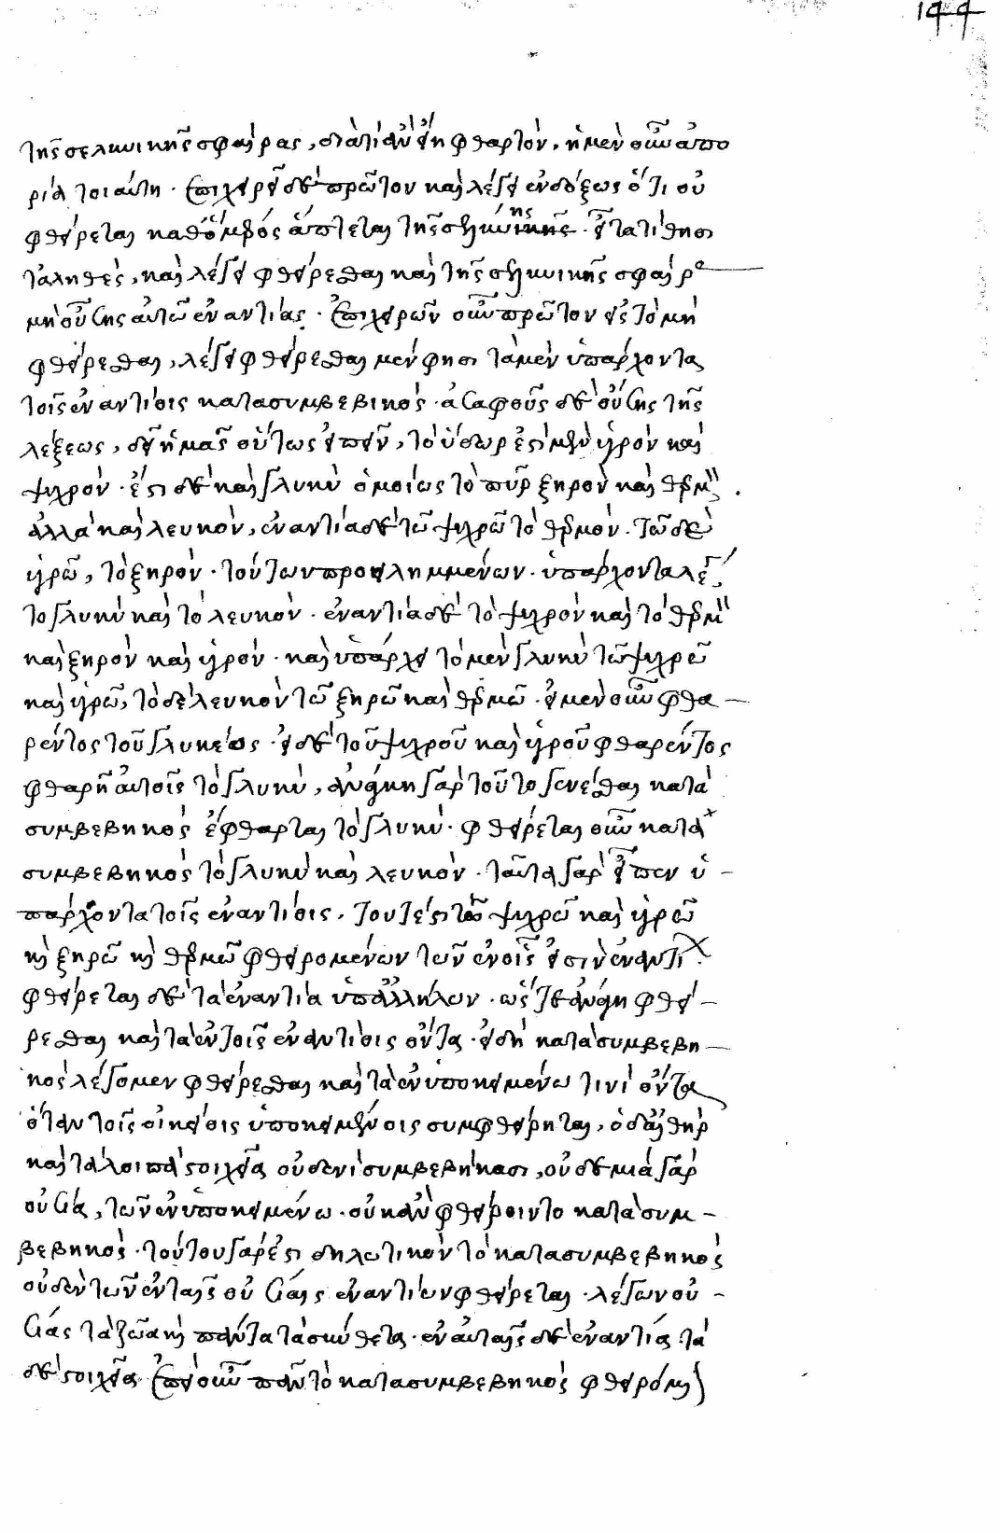 144
τῆς σεληνικῆς σφαίρας, διατί ἂν εἴη φθαρτόν. ἡ μὲν οὖν ἀπο
ρία τοιαύτη. ἐπιχειρεῖ δὲ πρῶτον καὶ λέγει ἐνδόξως ὅτι οὐ
φθείρεται καθὸ μέρος ἅπτεται τῆς σελήνης. εἶτα τίθησι
τἀληθὲς, καὶ λέγει φθείρεσθαι καὶ τῆς σεληνικῆς σφαίρας
μὴ οὔσης αὐτῶ ἐναντίας. ἐπιχειρῶν οὖν πρῶτον εἰς τὸ μὴ
φθείρεσθαι, λέγει φθείρεσθαι μέν φησι τὰ μὲν ὑπάρχοντα
τοῖς ἐναντίοις κατασυμβεβικός. ἀσαφοῦς δὲ οὔσης τῆς
λέξεως, δεῖ ἡμᾶς οὕτως εἰπεῖν, τὸ ὕδωρ ἐστὶ μὲν ὑγρὸν καὶ
ψυχρόν. ἔστι δὲ καὶ γλυκὺ ὁμοίως τὸ πῦρ ξηρὸν καὶ θερμὸν.
ἀλλὰ καὶ λευκὸν, ἐναντία δὲ τῶ ψυχρῶ τὸ θερμόν. τῶ δὲ
ὑγρῶ, τὸ ξηρόν. τούτων προειλημμένων. ὑπάρχοντα λέγει
τὸ γλυκὺ καὶ τὸ λευκόν. ἐναντία δὲ τὸ ψυχρὸν καὶ τὸ θερμὸν
καὶ ξηρὸν καὶ ὑγρόν. καὶ ὑπάρχει τὸ μὲν γλυκὺ τῶ ψυχρῶ
καὶ ὑγρῶ, τὸ δὲ λευκὸν τῶ ξηρῶ καὶ θερμῶ. εἰ μὲν οὖν φθα
ρέντος τοῦ γλυκέος. εἰ δὲ τοῦ ψυχροῦ καὶ ὑγροῦ φθαρέντος
φθαρῆ αὐτοῖς τὸ γλυκὺ, ἀνάγκη γὰρ τοῦτο γενέσθαι κατὰ
συμβεβηκὸς ἔφθαρται τὸ γλυκύ. φθείρεται οὖν κατὰ
συμβεβηκὸς τὸ γλυκὺ καὶ λευκόν. ταῦτα γὰρ εἶπεν ὑ
πάρχοντα τοῖς ἐναντίοις. τουτέστι τῶ ψυχρῶ καὶ ὑγρῶ
καὶ ξηρῶ καὶ θερμῶ φθειρομένων τῶν ἐν οἷς εἰσὶν ἐναντί.
φθείρεται δὲ τὰ ἐναντία ὑπἀλλήλων. ὥστε ἀνάγκη φθεί
ρεσθαι καὶ τὰ ἐν τοῖς ἐναντίοις ὄντα. εἰ δὴ κατὰ συμβεβη
κὸς λέγομεν φθείρεσθαι καὶ τὰ ἐν ὑποκειμένω τινὶ ὄντα
ὅταν τοῖς οἰκείοις ὑποκειμένοις συμφθείρηται, ὁ δ αἰθὴρ
καὶ τὰ λοιπὰ στοιχεῖα οὐδενὶ συμβεβήκασι, οὐδεμιά γὰρ
οὐσία, τῶν ἐν ὑποκειμένω. οὐκ ἂν φθείροιντο κατὰ συμ
βεβηκός. τούτου γάρ ἐστι δηλωτικὸν τὸ κατασυμβεβηκὸς
οὐδὲν τῶν ἐν ταῖς οὐσίαις ἐναντίων φθείρεται. λέγων οὐ
σίας τὰ ζῶα καὶ πάντα τὰ σύνθετα. ἐν αὐταῖς δὲ ἐναντία τὰ
δὲ στοιχεῖα ἐπεὶ οὖν πᾶν τὸ κατασυμβεβηκὸς φθειρόμενον